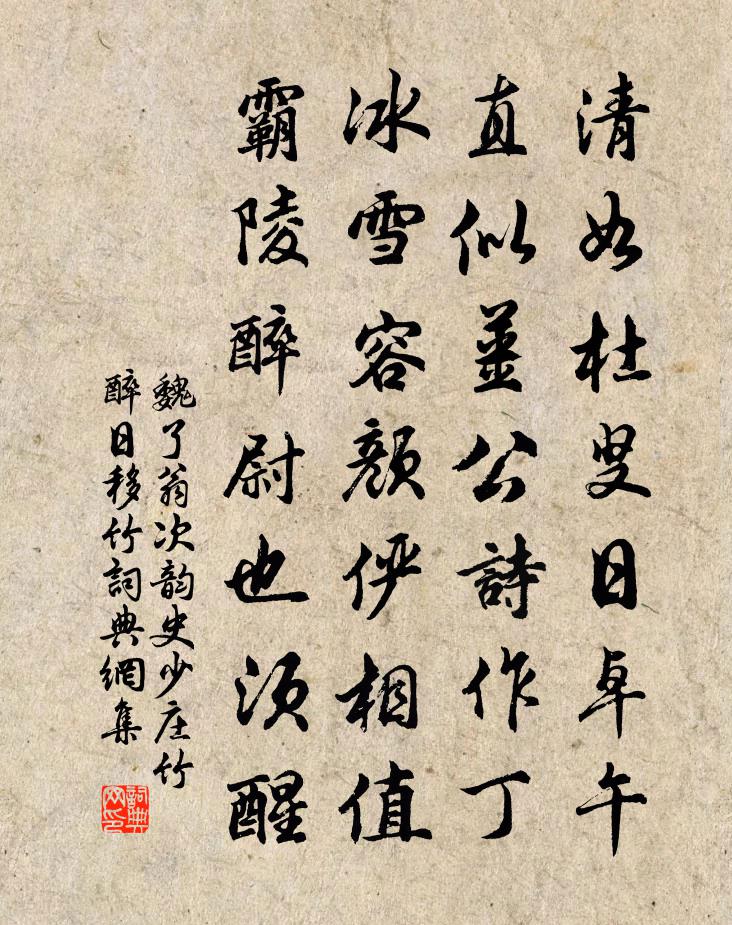 清如杜叟日卓午
直似薑公詩作丁
冰雪容顏伻相值
霸陵醉尉也須醒
魏了翁次韵史少庄竹
醉日移竹詞典網集
詞典网印